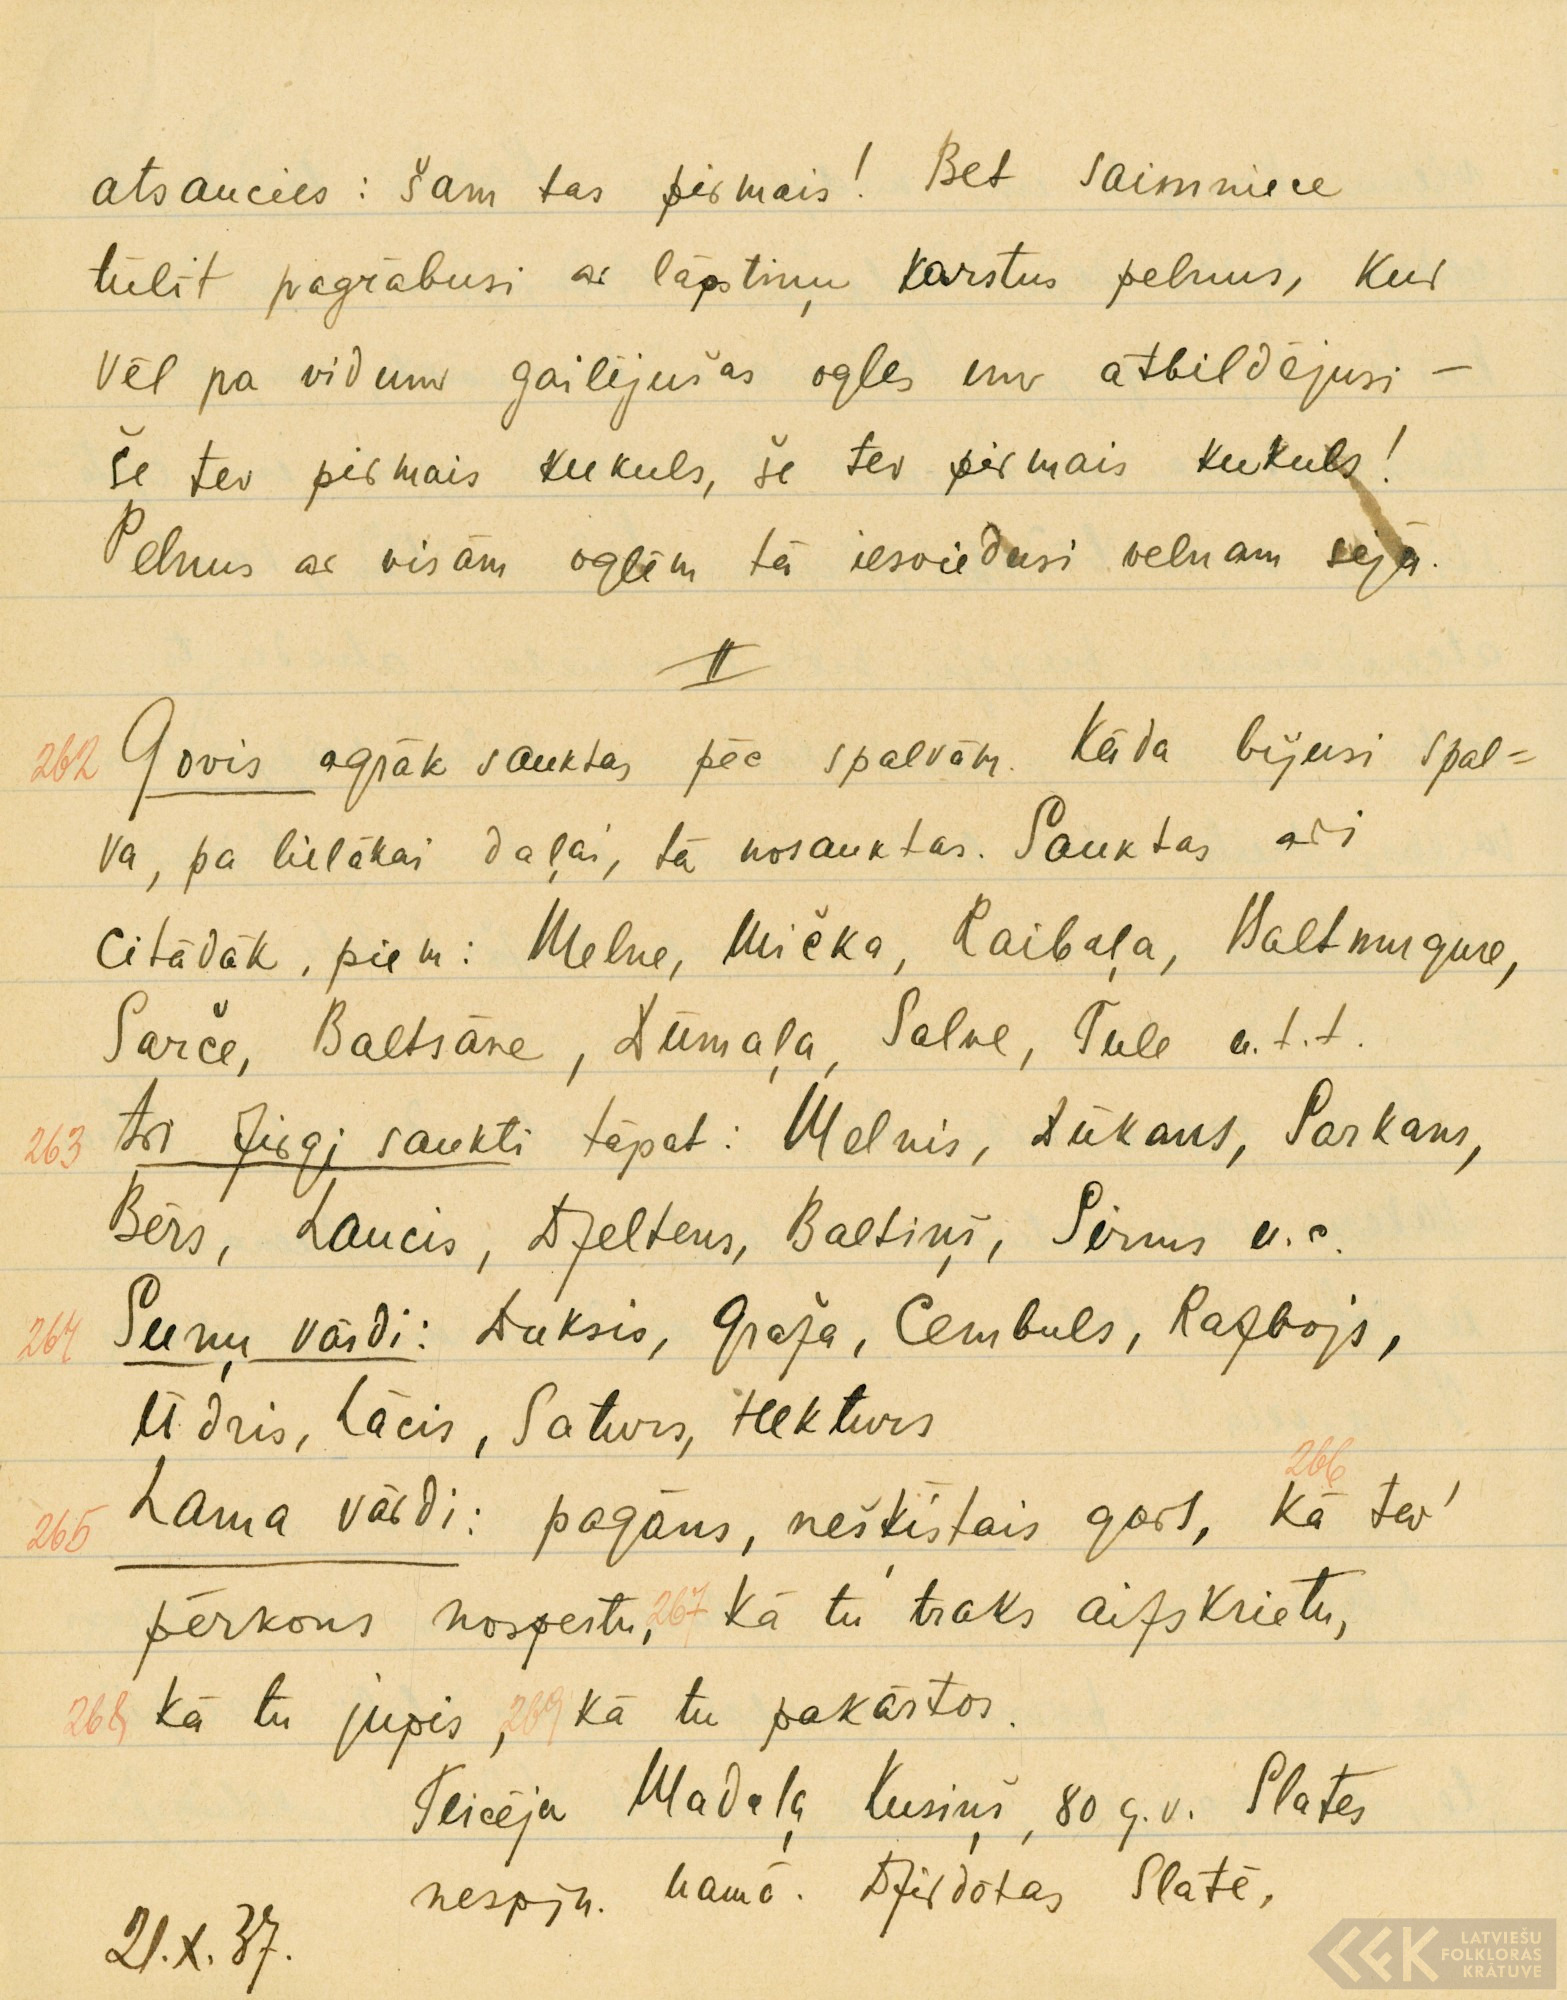 atsaucies: šam tas pirmais! Bet saimniece
tūlīt pagrābusi ar lāpstiņu karstus pelnus, kur
vēl pa vidum gailējušas ogles un atbildējusi —
še tev pirmais kukuls, še tev pirmais kukuls!
Pelnus ar visām oglēm tā iesviedusi velnam sejā.
II
262 Govis agrāk sauktas pēc spalvām. Kāda bijusi spal=
va, pa lielākai daļai, tā nosauktas. Sauktas arī
citādāk, piem: Melne, Mička, Raibaļa, Baltmugure,
Sarče, Baltsāne, Dūmaļa, Salne, Tule u.t.t.
263 Arī zirgi saukti tāpat: Melnis, Dūkans, Sarkans,
Bērs, Laucis, Dzeltens, Baltiņš, Sirms u.c.
264 Suņu vārdi: Duksis, Graža, Cembuls, Razbojs,
Ūdris, Lācis, Saturs, Hekturs
266
265 Lama vārdi: pagāns, nešķīstais gars, kā tev
pērkons nospertu, 267 kā tu traks aizskrietu,
268 kā tu jupis, 269 kā tu pakārtos.
Teicēja Madaļa Kusiņš, 80 g.v. Slates
nespēj. namā. Dzirdētas Slatē,
21.X.37.
LATVIEŠU
FOLKLORAS
KRĀTUVE